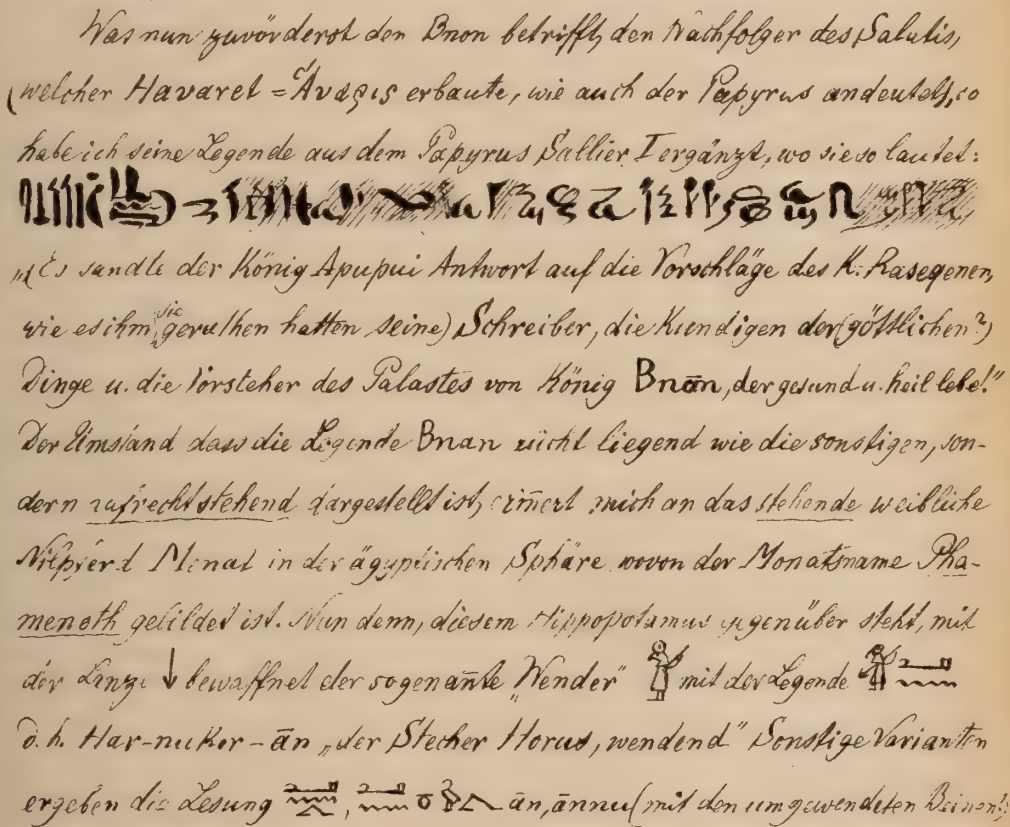 Was nun zuvörderst den Bnon betrifft, den Nachfolger des Salatis,
(welcher Havaret = Ἄυαρις erbaute, wie auch der Papyrus andeutet), so
habe ich seine Legende aus dem Papyrus Sallier I ergänzt, wo sie so lautet:
„(Es sandte der König Apupui Antwort auf die Vorschläge des K. Rasegenen,
wie es ihm sie geruthen hatten seine) Schreiber, die Kundigen der (göttlichen?)
Dinge u. die Vorsteher des Palastes von König Bnān, der gesund u. heil lebe!"
Der Umstand dass die Legende Bnan nicht liegend wie die sonstigen, son-
dern aufrechtstehend dargestellt ist, erin̄ert mich an das stehende weibliche
Nilpferd Menat in der ägyptischen Sphäre wovon der Monatsname Pha-
menoth gebildet ist. Nun denn, diesem Hippopotamus gegenüber steht, mit
der Lanze bewaffnet der sogenan̄te „Wender" mit der Legende
d. h. Har-nuker-ān „der Stecher Horus, wendend" Sonstige Varianten
ergeben die Lesung ān, ānnu (mit den umgewendeten Beinen!;